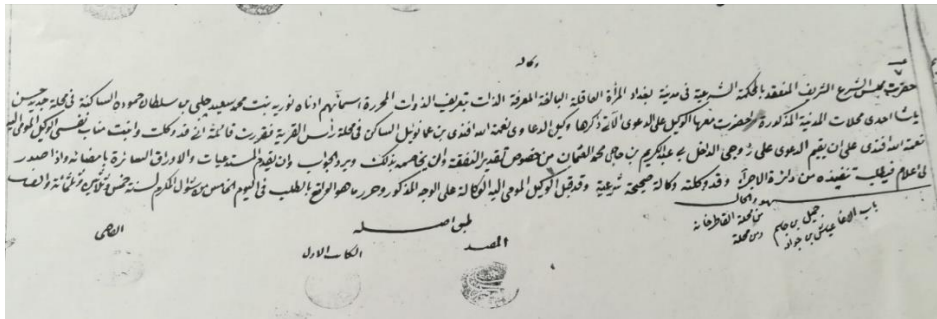 وكالة
حضرت مجلس الشرع الشريف المنعقد بالمحكمة الشرعية في مدينة بغداد المرأة العاقلة البالغة المعرفة الذات بتعريف الذوات المحررة اسمائهم ادناه نورية بنت محمد سعيد جلبي بن سلطان حمودة الساكنة في محلة جديد حسن
باشا احدى محلات المدينة المذكورة واحضرت معها الوكيل على الدعوى الآتي ذكرها وكيل الدعاوي نعمة الله افندي بن عمانوئيل الساكن في محلة رأس القرية فقررت قائلة اني قد وكلت وانبت مناب نفسي الوكيل المومى اليه
نعمة الله افندي على ان يقيم الدعوى على زوجي الداخل بي عبد الكريم بن حاجي محمد العثمان من خصوص تقدير النفقة وأن يخاصمه بذلك ويرد الجواب وان يقدم المستدعيات والاوراق السائرة بإمضائه واذا صدور
لي اعلام فيطلب تنفيذه من دائرة الاجراء وقد وكلته وكالة صحيحة شرعية وقد قبل الوكيل المومى اليه الوكالة على الوجه المذكور وحرر ماهو الواقع بالطلب في اليوم الخامس من شوال المكرم لسنة خمس وثلاثين وثلاثمائة والف
شهود الحال
جميل بن جاسم من محلة القاطرخانة
بن جواد من محلة باب الاغا
طبق اصله
المقيد
الكاتب الاول
القاضي